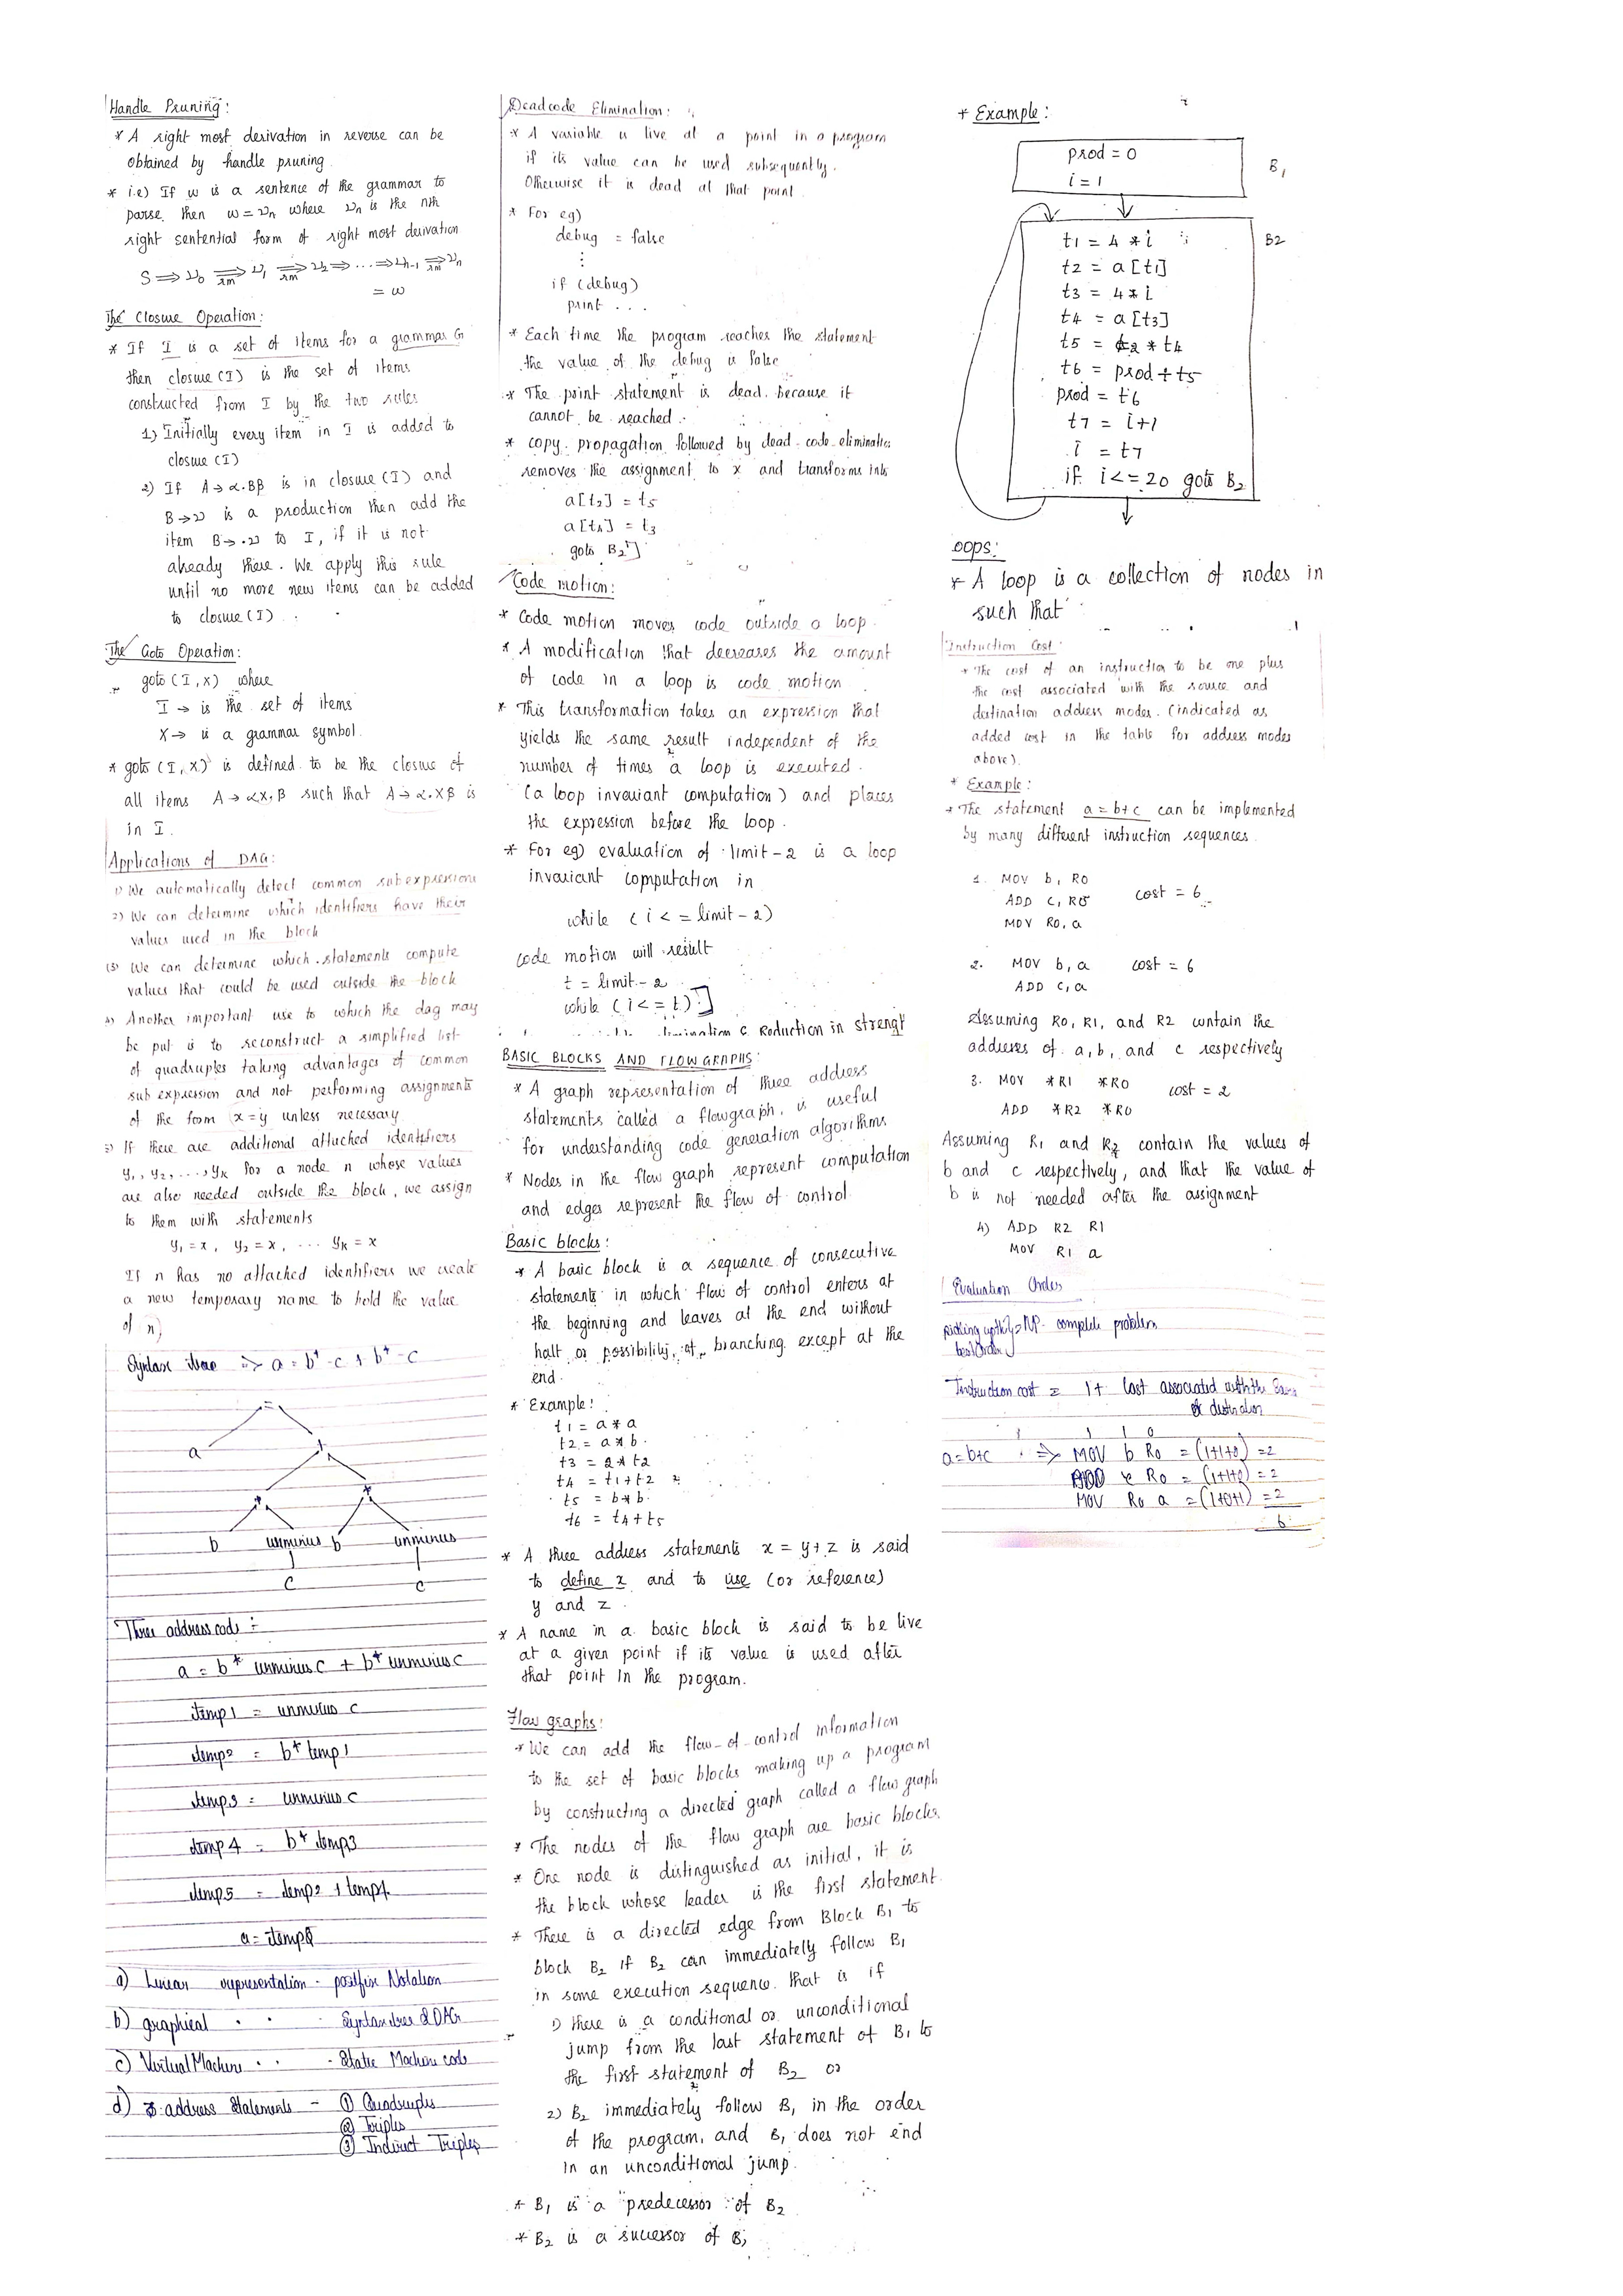 Handle Pruning:
* A right most derivation in reverse can be
obtained by handle pruning.
* i.e) If w is a sentence of the grammar to
parse, then w = νn where νn is the nth
right sentential form of right most derivation
S ⇒ ν0 ⇒rm ν1 ⇒rm ν2 ⇒ ... ⇒ νn-1 ⇒rm νn
= w
The Closure Operation:
* If I is a set of items for a grammar G
then closure (I) is the set of items
constructed from I by the two rules
1) Initially every item in I is added to
closure (I)
2) If A → α.Bβ is in closure (I) and
B → ν is a production then add the
item B → .ν to I, if it is not
already there. We apply this rule
until no more new items can be added
to closure (I).
The Goto Operation:
goto (I, x) where
I → is the set of items
X → is a grammar symbol.
* goto (I, x) is defined to be the closure of
all items A → αX.β such that A → α.Xβ is
in I.
Applications of DAG:
1) We automatically detect common subexpressions
2) We can determine which identifiers have their
values used in the block
(3) We can determine which statements compute
values that could be used outside the block
4) Another important use to which the dag may
be put is to reconstruct a simplified list
of quadruples taking advantages of common
sub expression and not performing assignments
of the form x = y unless necessary
5) If there are additional attached identifiers
y1, y2, ...., yk for a node n whose values
are also needed outside the block, we assign
to them with statements
y1 = x, y2 = x, ... yk = x
If n has no attached identifiers we create
a new temporary name to hold the value
of n)
Syntax tree => a = b* -c + b* -c
=
a +
* *
b unminus b unminus
c c
Three address code :-
a = b* unminus c + b* unminus c
temp1 = unminus c
temp2 = b* temp1
temp3 = unminus c
temp4 = b* temp3
temp5 = temp2 + temp4
a = temp5
a) Linear representation - postfix Notation
b) graphical " " - Syntax tree & DAG
c) Virtual Machine " " - Static Machine code
d) 3-address Statements - ① Quadruples
② Triples
③ Indirect Triples
Deadcode Elimination:
* A variable is live at a point in a program
if its value can be used subsequently.
Otherwise it is dead at that point.
* For eg)
debug = false
⋮
if (debug)
print ...
* Each time the program reaches the statement
the value of the debug is false
* The print statement is dead because it
cannot be reached.
* copy propagation followed by dead-code-eliminatio
removes the assignment to x and transforms into
a[t2] = t5
a[t4] = t3
goto B2]
Code motion:
* Code motion moves code outside a loop.
* A modification that decreases the amount
of code in a loop is code motion
* This transformation takes an expression that
yields the same result independent of the
number of times a loop is executed.
(a loop invariant computation) and places
the expression before the loop.
* For eg) evaluation of limit-2 is a loop
invariant computation in
while (i <= limit-2)
code motion will result
t = limit-2
while (i <= t)]
elimination & Reduction in strengt
BASIC BLOCKS AND FLOWGRAPHS:
* A graph representation of three address
statements called a flowgraph, is useful
for understanding code generation algorithms
* Nodes in the flow graph represent computation
and edges represent the flow of control.
Basic blocks:
* A basic block is a sequence of consecutive
statements in which flow of control enters at
the beginning and leaves at the end without
halt or possibility of branching except at the
end.
* Example:
t1 = a * a
t2 = a * b
t3 = 2 * t2
t4 = t1 + t2
t5 = b * b
t6 = t4 + t5
* A three address statements x = y + z is said
to define x and to use (or reference)
y and z.
* A name in a basic block is said to be live
at a given point if its value is used after
that point in the program.
Flow graphs:
* We can add the flow-of-control information
to the set of basic blocks making up a program
by constructing a directed graph called a flow graph
* The nodes of the flow graph are basic blocks.
* One node is distinguished as initial, it is
the block whose leader is the first statement.
* There is a directed edge from Block B1 to
block B2 if B2 can immediately follow B1
in some execution sequence. that is if
1) there is a conditional or unconditional
jump from the last statement of B1 to
the first statement of B2 or
2) B2 immediately follow B1 in the order
of the program, and B1 does not end
in an unconditional jump.
* B1 is a predecessor of B2
* B2 is a sucessor of B1
* Example:
prod = 0
i = 1
B1
t1 = 4 * i
B2
t2 = a[t1]
t3 = 4 * i
t4 = a[t3]
t5 = t2 * t4
t6 = prod + t5
prod = t6
t7 = i+1
i = t7
if i <= 20 goto B2
oops:
* A loop is a collection of nodes in
such that
Instruction Cost:
* The cost of an instruction to be one plus
the cost associated with the source and
destination address modes. (indicated as
added cost in the table for address modes
above).
* Example:
* The statement a = b+c can be implemented
by many different instruction sequences.
1. MOV b, R0
ADD C, R0 cost = 6
MOV R0, a
2. MOV b, a cost = 6
ADD C, a
Assuming R0, R1, and R2 contain the
addresses of a, b, and c respectively
3. MOV *R1 *R0
cost = 2
ADD *R2 *R0
Assuming R1 and R2 contain the values of
b and c respectively, and that the value of
b is not needed after the assignment
4) ADD R2 R1
MOV R1 a
Evaluation Order
picking up the => NP-complete problem
best order
Instruction cost = 1+ cost associated with the
& destination
1 1 0
a=b+c => MOV b R0 = (1+1+0) = 2
ADD c R0 = (1+1+0) = 2
MOV R0 a = (1+0+1) = 2
6